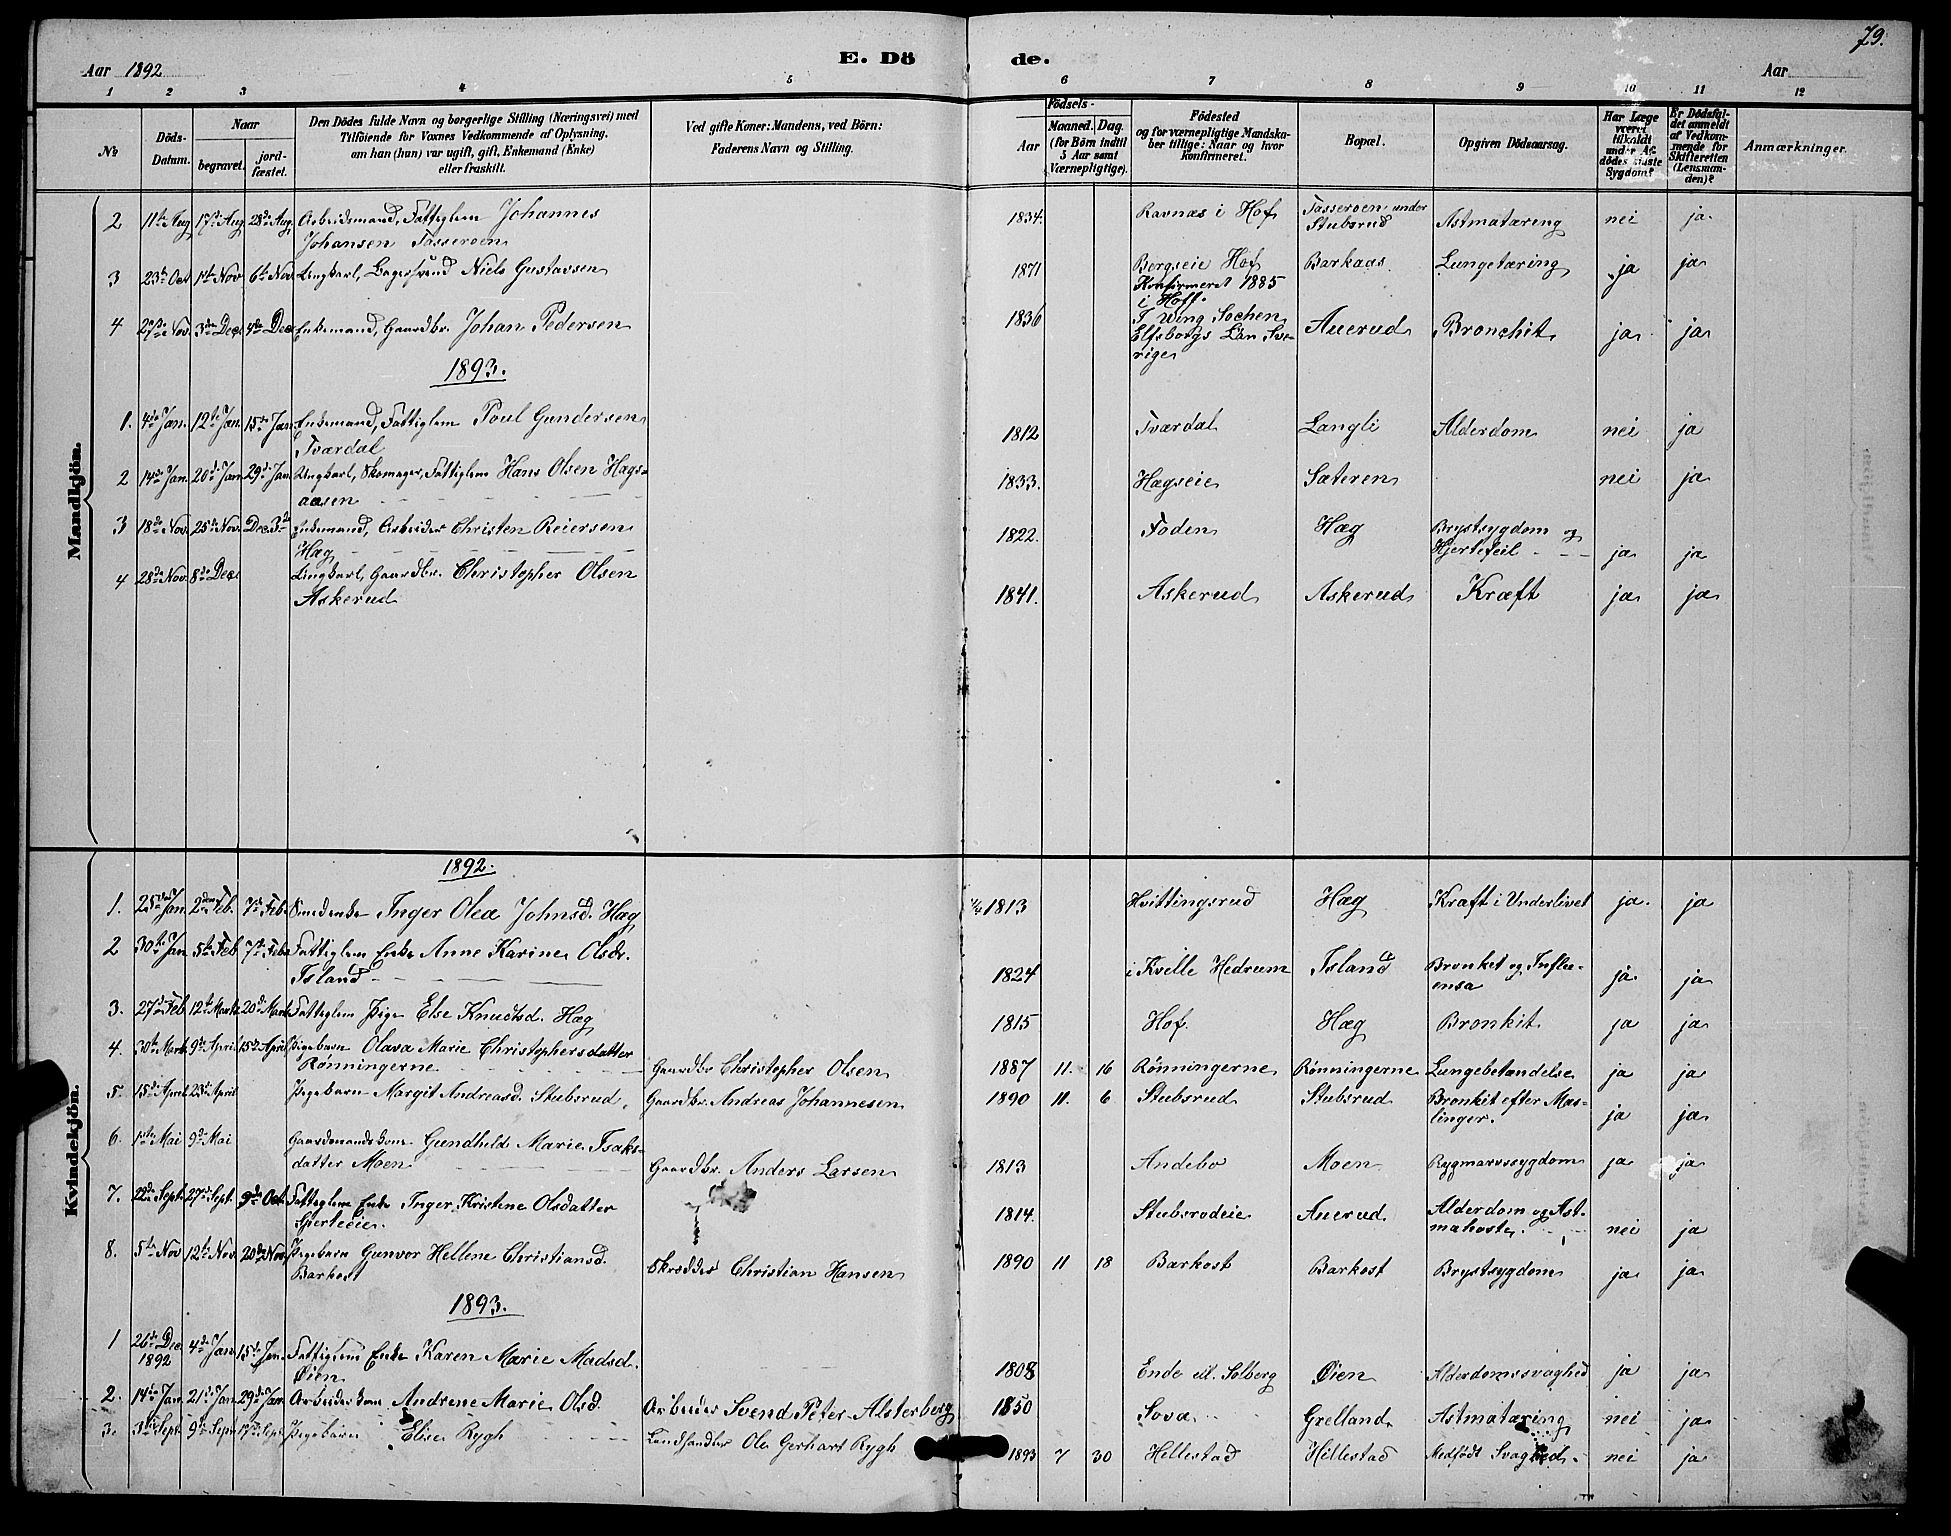 79.
E. Dö de.
Aar 1892
Aar
1 2 3 4 5 6 7 8 9 10 11 12
№
Döds-Datum.
Naar
begravet.
jord-fæstet.
Den Dödes fulde Navn og borgerlige Stilling (Næringsvei) med
Tilföiende for Voxnes Vedkommende af Oplysning,
om han (hun) var ugift, gift, Enkemand (Enke)
eller fraskilt.
Ved gifte Koner: Mandens, ved Börn:
Faderens Navn og Stilling.
Födsels-
Aar
Maaned. Dag.
(for Börn indtil
5 Aar samt
Værnepligtige).
Födested
og for værnepligtige Mandska-
ber tillige: Naar og hvor
konfirmeret.
Bopæl.
Opgiven Dödsaarsag.
Har Læge
været
tilkaldt
under Af-
dödes sidste
Sygdom?
Er Dödsfal-
det anmeldt
af Vedkom-
mende for
Skifteretten
(Lensman-
den)?
Anmærkninger.
Mandkjön.
2 11te Aug 17de Aug 28de Aug Arbeidsmand, Fattiglem Johannes
Johansen Tasseroen 1834. Ravnæs i Hof Tasseroen under
Stubsrud Astmatæring nei ja
3 23de Oct 1ste Nov 6te Nov Ungkarl, Bagersvend Niels Gustavsen 1871 Borgseie Hof
Konfirmeret 1885
i Hoff. Barkaas Lungetæring ja ja
4 27de Nov. 3die Dec 4de Dec Enkemand, Gaardbr. Johan Pedersen 1836 I Wing Sochen
Elfsborgs Län Sve-
rige Auerud Bronchit ja ja
1893.
1. 4de Jan. 12te Jan. 15de Jan Enkemand, Fattiglem Poul Gundersen
Tværdal 1812 Tværdal Langli Alderdom nei ja
2 14de Jan. 20de Jan 29de Jan Ungkarl, Skomager, Fattiglem Hans Olsen Hægs-
aasen 1833. Hægseie Sæteren nei ja
3 18de Nov. 25de Nov. Dec. 3die Enkemand, Arbeider Christen Reiersen
Hæg 1822. Foden Hæg Brystsygdom og
Hjertefeil ja ja
4 28de Nov. 8de Dec Ungkarl, Gaardbr. Christopher Olsen
Askerud 1841. Askerud Askerud Kræft ja ja
Kvindekjön.
1892.
1. 25de Jan. 2den Feb. 7de Feb. Smedenke Inger Olea Johnsd. Hæg 1/4 1813 Hvittingsrud Hæg Kræft i Underlivet ja ja
2 30te Jan 5te Feb 7de Feb Fattiglem Enke Anne Karine Olsdr.
Island 1824 i Kvelle Hedrum Island Bronkit og Influ-
ensa ja ja
3. 27de Feb 12te Marts 20de Marts Fattiglem Pige Else Knudsd. Hæg 1815 Hof. Hæg Bronkit ja ja
4. 30te Marts 9de April 15de April Pigebarn Olava Marie Christophersdatter
Rønningerne Gaardbr Christopher Olsen 1887 11. 16 Rønningerne Rønningerne Lungebetændelse ja ja
5. 15de April 23de April Pigebarn Margit Andreasd. Stubsrud Gaardbr. Andreas Johannesen 1890 11. 6 Stubsrud Stubsrud Bronkit efter Mæs-
linger. ja ja
6. 1ste Mai 9de Mai Gaardmandskone Gundhild Marie Isaks-
datter Moen Gaardbr. Anders Larsen 1813 Andebo Moen Rygmarvssygdom ja ja
7. 22de Sept. 27de Sept. 9de Oct. Fattiglem Enke Inger Kristine Olsdatter
Sperteeie. 1814. Stubsrodeie Auerud Alderdom og Ast-
mahoste. nei ja
8. 5te Nov 12te Nov. 20de Nov. Pigebarn Gunvor Hellene Christiansd.
Barkost Skredder Christian Hansen 1890 11 18 Barkost Barkost Brystsygdom ja ja
1893.
1 26de Dec
1892 4de Jan 15de Jan. Fattiglem Enke Karen Marie Madsd.
Øien 1808 Ende eil. Solberg Øien Alderdomssvaghed ja ja
2. 14de Jan 21de Jan 29de Jan Arbeiderskone Andrene Marie Olsd. Arbeider Svend Peter Alsterberg 1850 Sova Grelland Astmatæring nei ja
3. 3die Sept. 9de Sept 17de Sept. Pigebarn Elise Rygh Landhandler Ole Gerhart Rygh 1893 7 30 Hellestad Hillestad Medfødt Svaghed nei ja